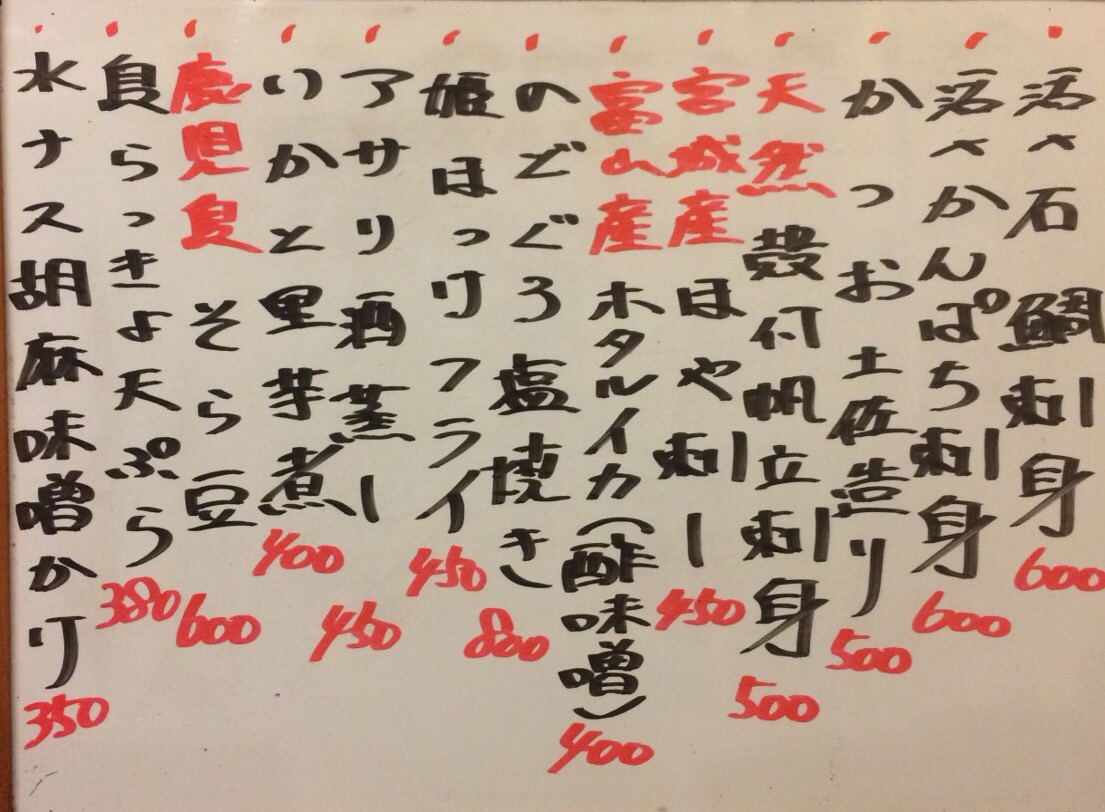 活〆石鯛刺身 600
活〆かんぱち刺身 600
かつお土佐造り 500
天然殻付帆立刺身 500
宮城産ほや刺し 450
富山産ホタルイカ(酢味噌) 400
のどぐろ塩焼き 800
姫ほっけフライ 450
アサリ酒蒸し 450
いかと里芋煮 400
鹿児島そら豆 600
島らっきょ天ぷら 380
水ナス胡麻味噌かけ 350